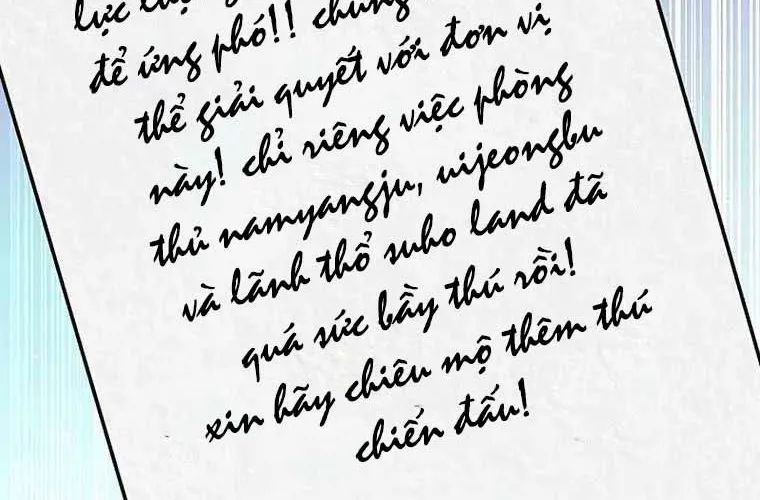 lực
để ứng phó!! chúng
thể giải quyết với đơn vị
này! chỉ riêng việc phòng
thủ namyangju, uijeongbu
và lãnh thổ suho land đã
quá sức bầy thú rồi!
xin hãy chiêu mộ thêm thú
chiến đấu!